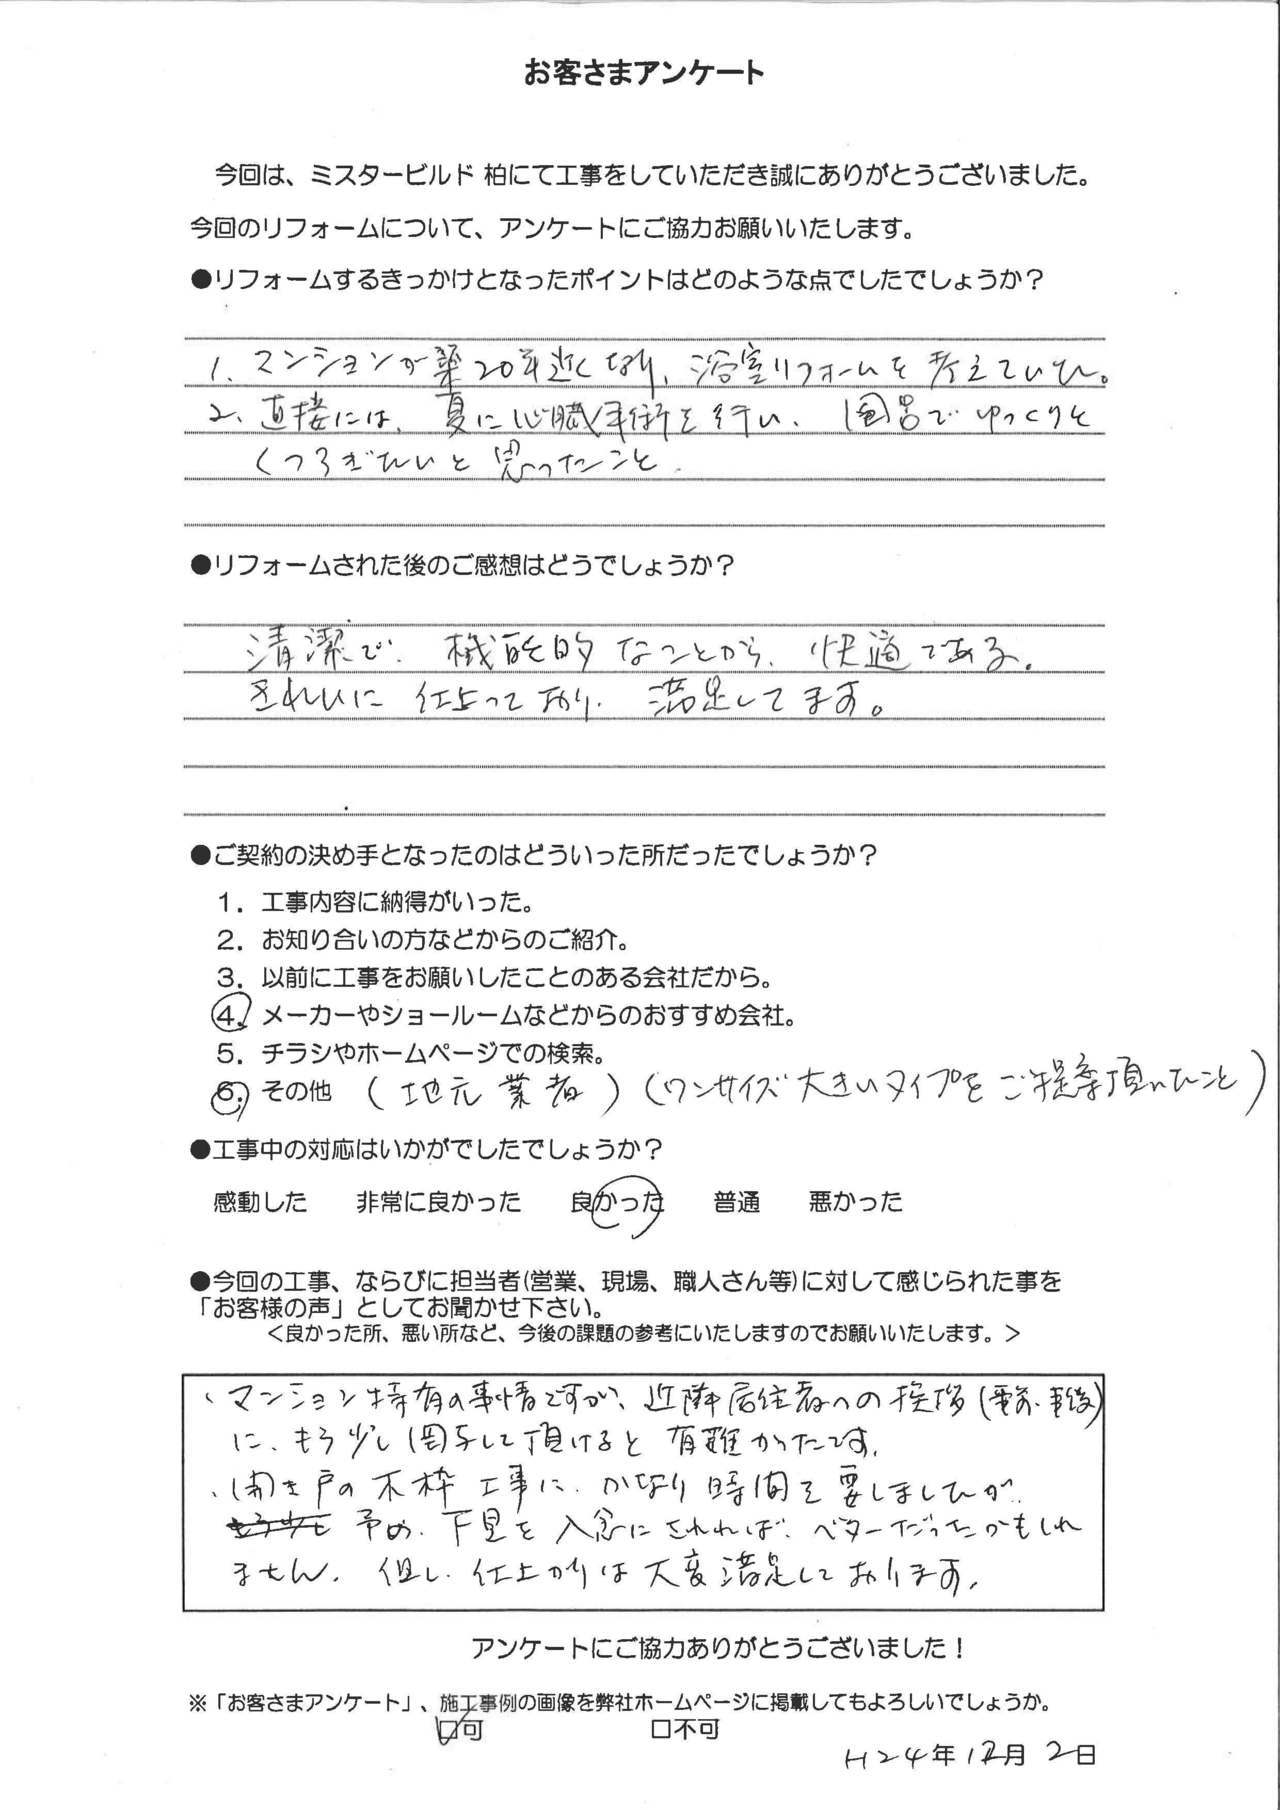 お客さまアンケート
今回は、ミスタービルド 柏にて工事をしていただき誠にありがとうございました。
今回のリフォームについて、アンケートにご協力お願いいたします。
●リフォームするきっかけとなったポイントはどのような点でしたでしょうか？
1. マンションが築20年近くなり、浴室リフォームを考えていた。
2. 直接には、夏に心臓手術を行い、風呂でゆっくりと
くつろぎたいと思ったこと.
●リフォームされた後のご感想はどうでしょうか？
清潔で、機能的なことから、快適である。
きれいに仕上っており、満足してます。
●ご契約の決め手となったのはどういった所だったでしょうか？
1．工事内容に納得がいった。
2．お知り合いの方などからのご紹介。
3．以前に工事をお願いしたことのある会社だから。
4．メーカーやショールームなどからのおすすめ会社。
5．チラシやホームページでの検索。
6．その他 (地元業者) (ワンサイズ大きいタイプをご提案頂いたこと)
●工事中の対応はいかがでしたでしょうか？
感動した 非常に良かった 良かった 普通 悪かった
●今回の工事、ならびに担当者(営業、現場、職人さん等)に対して感じられた事を
「お客様の声」としてお聞かせ下さい。
＜良かった所、悪い所など、今後の課題の参考にいたしますのでお願いいたします。＞
、マンション特有の事情ですが、近隣居住者への挨拶(事前、事後)
に、もう少し関与して頂けると有難かったです.
、開き戸の木枠工事に、かなり時間を要しましたが、
予め、下見を入念にされれば、ベターだったかもしれ
ません. 但し、仕上がりは大変満足しております.
アンケートにご協力ありがとうございました！
※「お客さまアンケート」、施工事例の画像を弊社ホームページに掲載してもよろしいでしょうか。
☑可 □不可
H24年12月2日